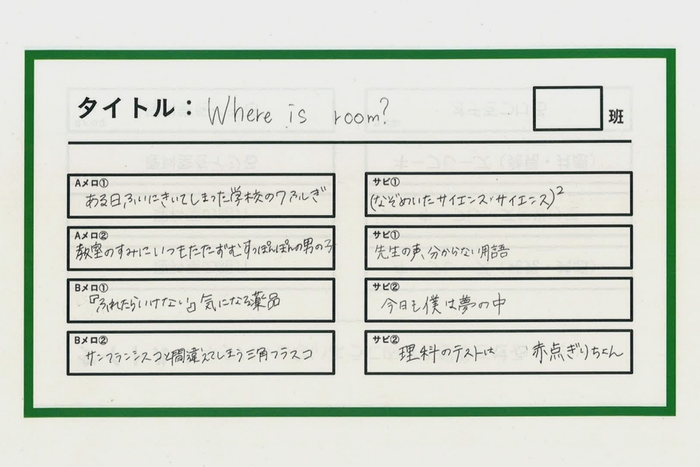 タイトル： Where is room?
班
Aメロ①
ある日ふいにきいてしまった学校のワフルぎ
Aメロ②
教室のすみにいつもたたずむすっぽんぽんの男の子
Bメロ①
『ふれたらいけない』気になる薬品
Bメロ②
サンフランシスコと間違えてしまう三角フラスコ
サビ①
(なぞめいたサイエンス・サイエンス)²
サビ①
先生の声、分からない用語
サビ②
今日も僕は夢の中
サビ②
理科のテストは 赤点ぎりちょん